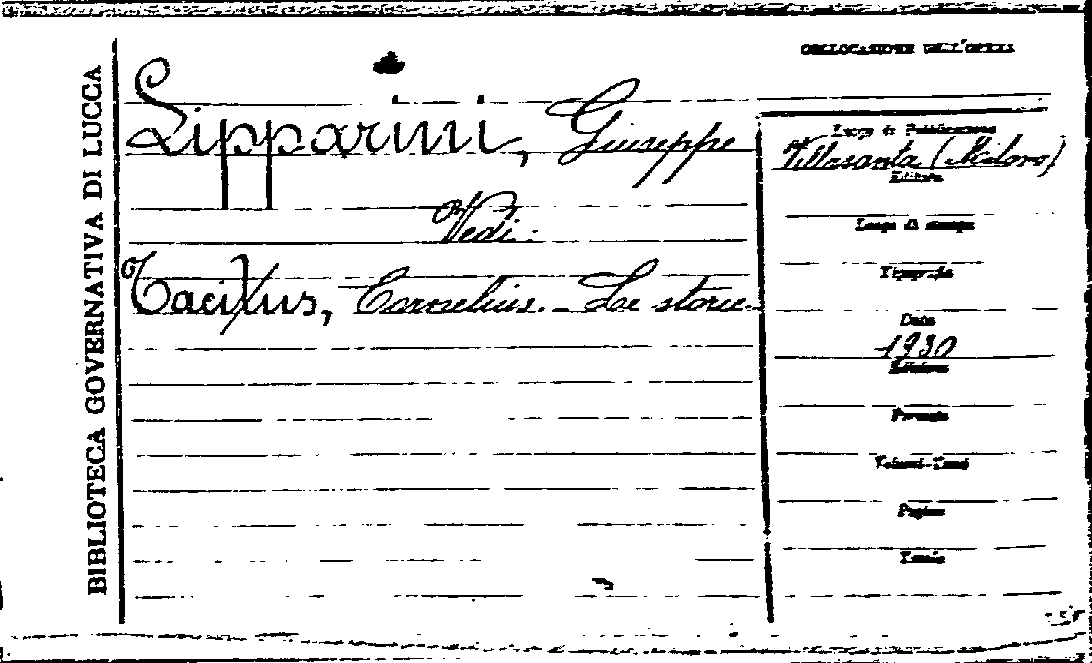 BIBLIOTECA GOVERNATIVA DI LUCCA
COLLOCAZIONE DELL'OPERA
Lipparini, Giuseppe
Vedi:
Tacitus, Cornelius. - Le storie.
Luogo di Pubblicazione
Villasanta (Milano)
Editore
Luogo di stampa
Tipografia
Data
1930
Edizione
Formato
Volumi-Tomi
Pagine
Tavole